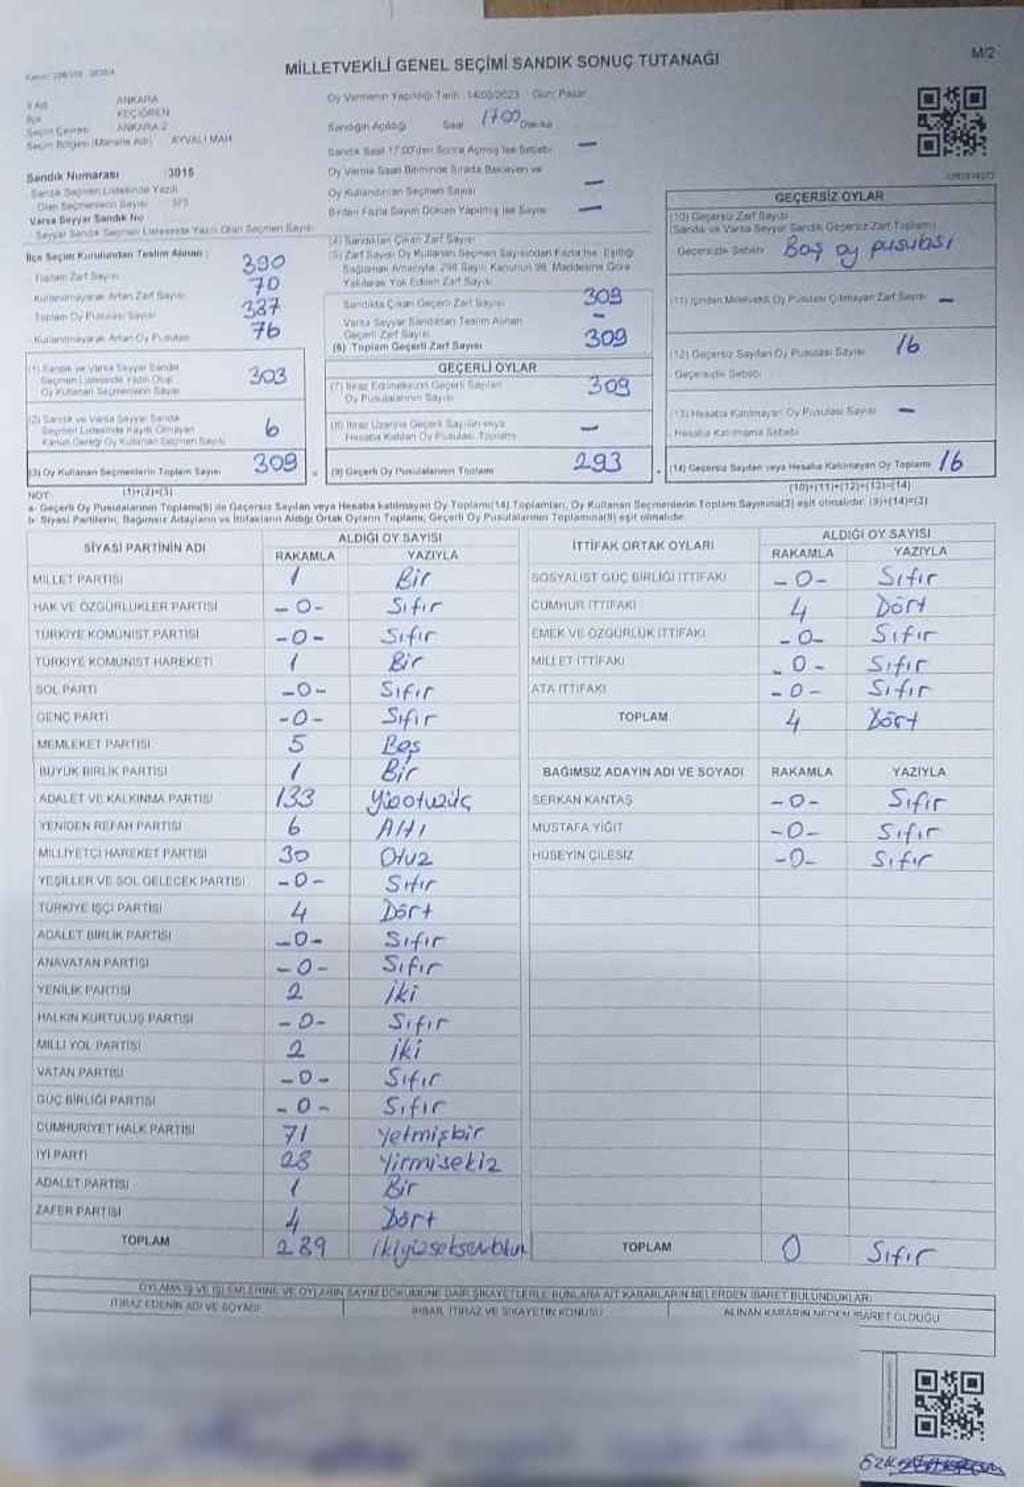 MİLLETVEKİLİ GENEL SEÇİMİ SANDIK SONUÇ TUTANAĞI
M/2
ANKARA
KEÇİÖREN
Seçim Çevresi ANKARA-2
Seçim Bölgesi (Mahalle Adı) AYVALI MAH
Sandık Numarası 3016
Sandık Seçmen Listesinde Yazılı
Olan Seçmenlerin Sayısı
Varsa Seyyar Sandık No
Seyyar Sandık Seçmen Listesinde Yazılı Olan Seçmen Sayısı
Oy Vermenin Yapıldığı Tarih 14/05/2023 Gün: Pazar
Sandığın Açıldığı Saat 17:00 Dakika
Sandık Saat 17:00'den Sonra Açılmış İse Sebebi —
Oy Verme Saati Bitiminde Sırada Bekleyen ve
Oy Kullandırılan Seçmen Sayısı —
Birden Fazla Sayım Döküm Yapılmış İse Sayısı —
İlçe Seçim Kurulundan Teslim Alınan
Toplam Zarf Sayısı 390
Kullanılmayarak Artan Zarf Sayısı 70
Toplam Oy Pusulası Sayısı 387
Kullanılmayarak Artan Oy Pusulası 76
(1) Sandık ve Varsa Seyyar Sandık
Seçmen Listesinde Yazılı Olup
Oy Kullanan Seçmenlerin Sayısı 303
(2) Sandık ve Varsa Seyyar Sandık
Seçmen Listesinde Kayıtlı Olmayan
Kanun Gereği Oy Kullanan Seçmen Sayısı 6
(3) Oy Kullanan Seçmenlerin Toplam Sayısı 309
(1)+(2)=(3)
(4) Sandıktan Çıkan Zarf Sayısı
(5) Zarf Sayısı Oy Kullanan Seçmen Sayısından Fazla İse, Eşitliği
Sağlamak Amacıyla, 298 Sayılı Kanunun 98. Maddesine Göre
Yakılarak Yok Edilen Zarf Sayısı
Sandıkta Çıkan Geçerli Zarf Sayısı 309
Varsa Seyyar Sandıktan Teslim Alınan
Geçerli Zarf Sayısı —
(6) Toplam Geçerli Zarf Sayısı 309
GEÇERLİ OYLAR
(7) İtiraz Edilmeksizin Geçerli Sayılan
Oy Pusulalarının Sayısı 309
(8) İtiraz Üzerine Geçerli Sayılan veya
Hesaba Katılan Oy Pusulası Toplamı —
(9) Geçerli Oy Pusulalarının Toplamı 293
GEÇERSİZ OYLAR
(10) Geçersiz Zarf Sayısı
(Sandık ve Varsa Seyyar Sandık Geçersiz Zarf Toplamı)
Geçersizlik Sebebi Boş oy pusulası
(11) İçinden Milletvekili Oy Pusulası Çıkmayan Zarf Sayısı —
(12) Geçersiz Sayılan Oy Pusulası Sayısı 16
Geçersizlik Sebebi
(13) Hesaba Katılmayan Oy Pusulası Sayısı —
Hesaba Katılmama Sebebi
(14) Geçersiz Sayılan veya Hesaba Katılmayan Oy Toplamı 16
(10)+(11)+(12)+(13)=(14)
NOT
a- Geçerli Oy Pusulalarının Toplamı(9) ile Geçersiz Sayılan veya Hesaba katılmayan Oy Toplamı(14) Toplamları, Oy Kullanan Seçmenlerin Toplam Sayısına(3) eşit olmalıdır. (9)+(14)=(3)
b- Siyasi Partilerin, Bağımsız Adayların ve İttifakların Aldığı Ortak Oyların Toplamı, Geçerli Oy Pusulalarının Toplamına(9) eşit olmalıdır.
SİYASİ PARTİNİN ADI ALDIĞI OY SAYISI
RAKAMLA YAZIYLA
MİLLET PARTİSİ 1 Bir
HAK VE ÖZGÜRLÜKLER PARTİSİ -0- Sıfır
TÜRKİYE KOMÜNİST PARTİSİ -0- Sıfır
TÜRKİYE KOMÜNİST HAREKETİ 1 Bir
SOL PARTİ -0- Sıfır
GENÇ PARTİ -0- Sıfır
MEMLEKET PARTİSİ 5 Beş
BÜYÜK BİRLİK PARTİSİ 1 Bir
ADALET VE KALKINMA PARTİSİ 133 Yüzotuzüç
YENİDEN REFAH PARTİSİ 6 Altı
MİLLİYETÇİ HAREKET PARTİSİ 30 Otuz
YEŞİLLER VE SOL GELECEK PARTİSİ -0- Sıfır
TÜRKİYE İŞÇİ PARTİSİ 4 Dört
ADALET BİRLİK PARTİSİ -0- Sıfır
ANAVATAN PARTİSİ -0- Sıfır
YENİLİK PARTİSİ 2 İki
HALKIN KURTULUŞ PARTİSİ -0- Sıfır
MİLLİ YOL PARTİSİ 2 İki
VATAN PARTİSİ -0- Sıfır
GÜÇ BİRLİĞİ PARTİSİ -0- Sıfır
CUMHURİYET HALK PARTİSİ 71 Yetmişbir
İYİ PARTİ 28 Yirmisekiz
ADALET PARTİSİ 1 Bir
ZAFER PARTİSİ 4 Dört
TOPLAM 289
İTTİFAK ORTAK OYLARI ALDIĞI OY SAYISI
RAKAMLA YAZIYLA
SOSYALİST GÜÇ BİRLİĞİ İTTİFAKI -0- Sıfır
CUMHUR İTTİFAKI 4 Dört
EMEK VE ÖZGÜRLÜK İTTİFAKI -0- Sıfır
MİLLET İTTİFAKI -0- Sıfır
ATA İTTİFAKI -0- Sıfır
TOPLAM 4 Dört
BAĞIMSIZ ADAYIN ADI VE SOYADI RAKAMLA YAZIYLA
SERKAN KANTAŞ -0- Sıfır
MUSTAFA YİĞİT -0- Sıfır
HÜSEYİN ÇİLESİZ -0- Sıfır
TOPLAM 0 Sıfır
OYLAMA İŞ VE İŞLEMLERİNE VE OYLARIN SAYIM DÖKÜMÜNE DAİR ŞİKAYETLERLE BUNLARA AİT KARARLARIN NELERDEN İBARET BULUNDUKLARI
İTİRAZ EDENİN ADI VE SOYADI İHBAR, İTİRAZ VE ŞİKAYETİN KONUSU ALINAN KARARIN NEDEN İBARET OLDUĞU